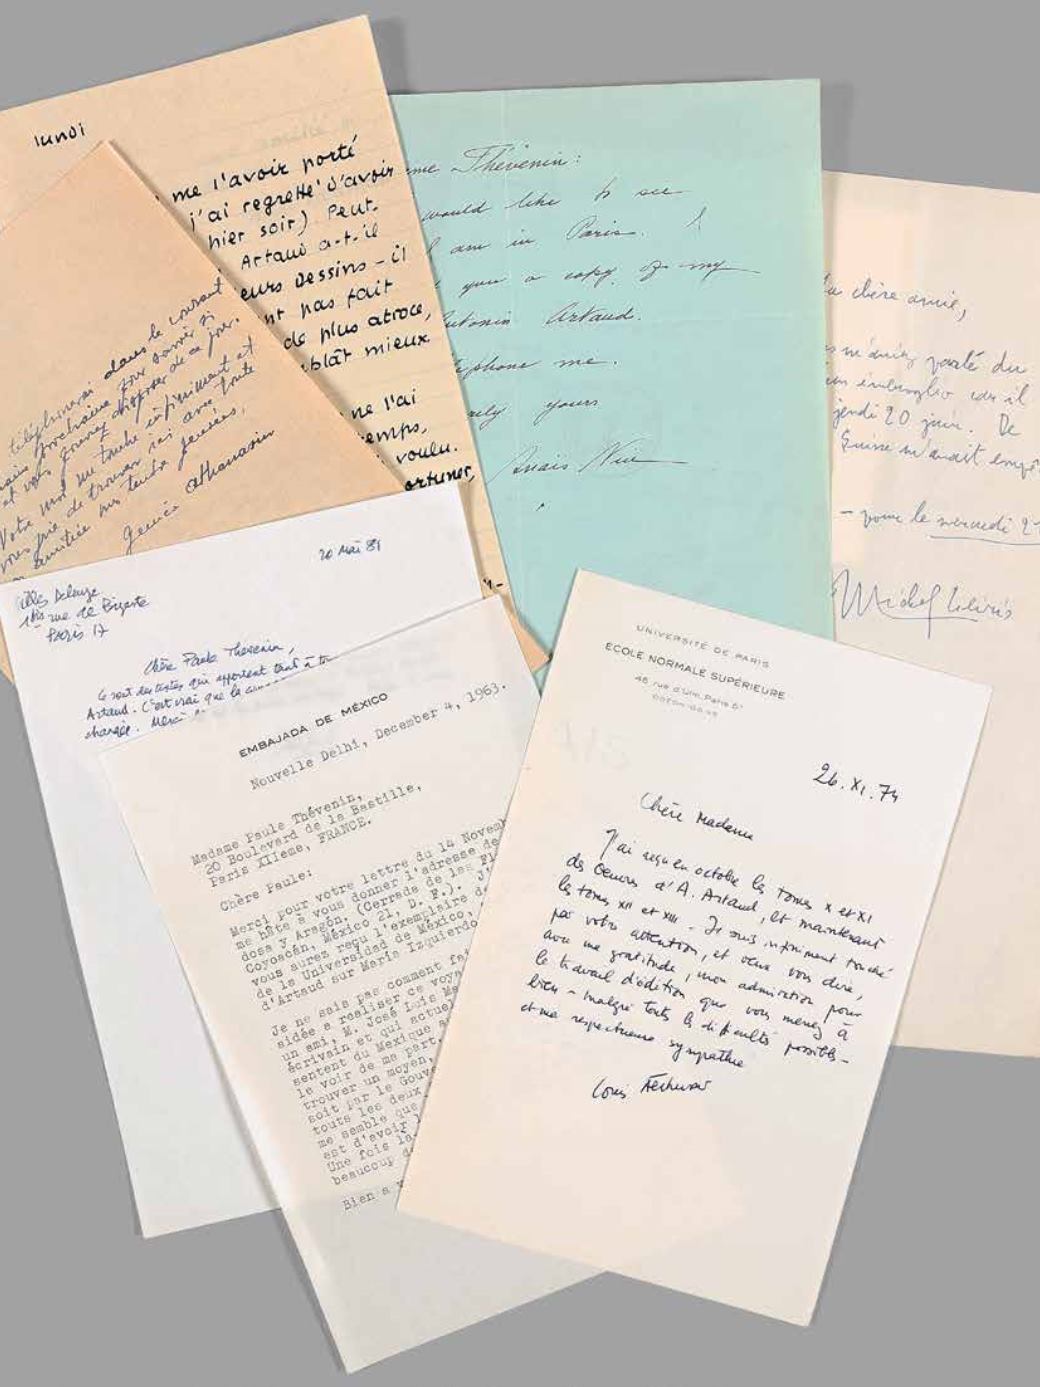 lundi
me l'avoir porté
j'ai regretté d'avoir
hier soir) Peut-
Artaud a-t-il
eurs dessins - il
nt pas fait
de plus atroce,
blât mieux
ne l'ai
emps,
voulu.
ortuner,
téléphonerai dans le courant
prochaine pour savoir si
et vous pouvez disposer de ce jour.
Votre mot me touche infiniment et
vous prie de trouver ici avec toute
amitié mes tendres pensées,
Genica Athanasiou
me Thévenin:
would like to see
I am in Paris. I
you a copy of my
Antonin Artaud.
telephone me.
rely yours
Anais Nin
chère amie,
m'aviez parlé du
imbroglio car il
jeudi 20 juin. De
Suisse m'avait
- pour le mercredi
Michel Leiris
20 Mai 81
Gilles Deleuze
1 bis rue de Bizerte
Paris 17
Chère Paule Thévenin,
Ce sont des textes qui apportent tant à
Artaud. C'est vrai que la
change. Merci
EMBAJADA DE MÉXICO
Nouvelle Delhi, December 4, 1963.
Madame Paule Thévenin,
20 Boulevard de la Bastille,
Paris XIIeme, FRANCE.
Chère Paule:
Merci pour votre lettre du 14 Novemb
me hâte à vous donner l'adresse de
dosa y Aragón. (Cerrada de las Fl
Coyoacán, México 21, D. F.). J'
vous aurez reçu l'exemplaire de
de la Universidad de México,
d'Artaud sur María Izquierdo
Je ne sais pas comment fai
aidée a realiser ce voya
un ami, M. José Luis Ma
écrivain et qui actuel
sentent du Mexique a
le voir de ma part.
trouver un moyen,
soit par le Gouv
touts les deux
me semble que
est d'avoir l
Une fois la
beaucoup d
Bien a v
UNIVERSITÉ DE PARIS
ECOLE NORMALE SUPÉRIEURE
45 rue d'Ulm, Paris 5e
26.XI.74
Chère Madame
J'ai reçu en octobre les tomes X et XI
des Oeuvres d'A. Artaud, et maintenant
les tomes XII et XIII. Je suis infiniment touché
par votre attention, et veux vous dire,
avec ma gratitude, mon admiration pour
le travail d'édition que vous menez à
bien - malgré toutes les difficultés possibles -
et ma respectueuse sympathie
Louis Althusser